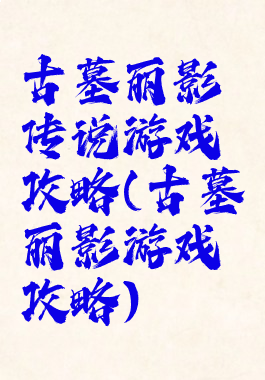 古墓丽影
传说游戏
攻略(古墓
丽影游戏
攻略)